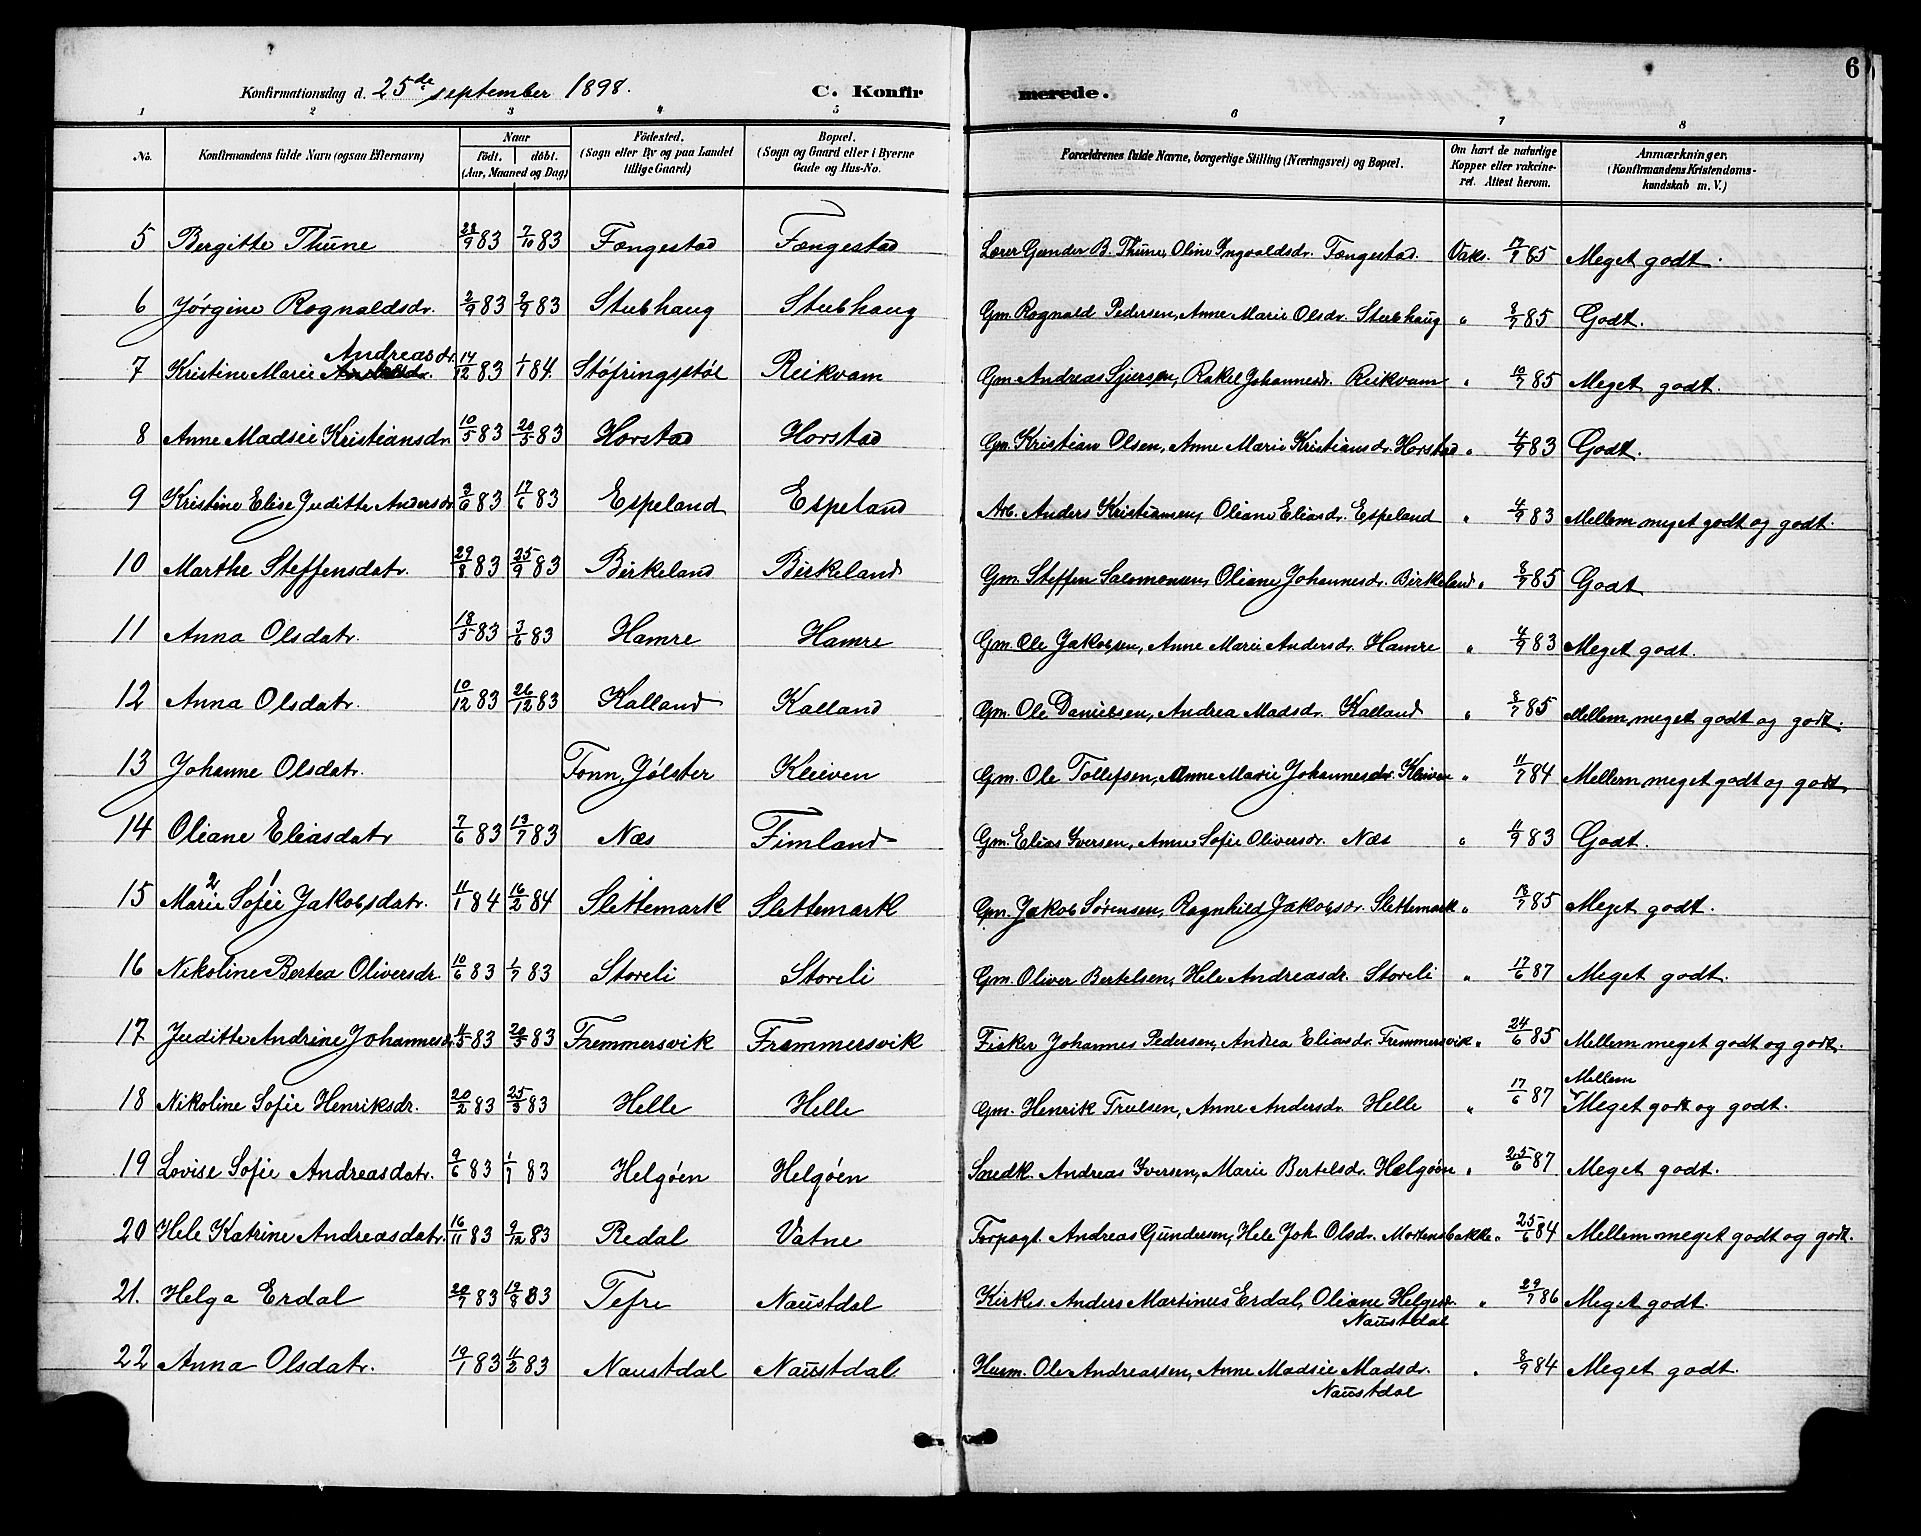 6
Konfirmationsdag d. 25de september 1898. C. Konfirmerede.
1 2 3 4 5 6 7 8
No. Konfirmandens fulde Navn (ogsaa Efternavn) Naar födt. döbt. (Aar, Maaned og Dag) Födested. (Sogn eller By og paa Landet tillige Gaard) Bopæl. (Sogn og Gaard eller i Byerne Gade og Hus-No. Forældrenes fulde Navne, borgerlige Stilling (Næringsvei) og Bopæl. Om havt de naturlige Kopper eller vakcineret. Attest herom. Anmærkninger. (Konfirmandens Kristendomskundskab m. V.)
5 Bergitte Thüne 28/9 83 7/10 83 Fængestad Fængestad Lærer Gunder B. Thüne, Oline Ingvaldsdr. Fængestad. Vaks. 17/7 85 Meget godt.
6 Jørgine Rognaldsdr. 2/9 83 9/9 83 Stubhaug Stubhaug Gm. Rognald Pedersen, Anne Marie Olsdr. Stubhaug " 8/7 85 Godt.
7 Kristine Marie Andreasdr. 14/12 83 1/1 84. Støfringsstøl Reikvam Gm Andreas Sjursen, Rakel Johannesdr. Reikvam " 10/7 85 Meget godt.
8 Anne Madsie Kristiansdr. 10/5 83 20/5 83 Horstad Horstad Gm. Kristian Olsen, Anne Marie Kristiansdr. Horstad " 4/9 83 Godt.
9 Kristine Elise Juditte Andersdr 3/6 83 17/6 83 Espeland Espeland Arb. Anders Kristiansen, Oliane Eliasdr. Espeland " 4/9 83 Mellem meget godt og godt.
10 Marthe Steffensdatr. 29/8 83 25/9 83 Birkeland Birkeland Gm. Steffen Salomonsen, Oliane Johannesdr. Birkeland " 8/7 85 Godt
11 Anna Olsdatr. 18/5 83 3/6 83 Hamre Hamre Gm. Ole Jakobsen, Anne Marie Andersdr. Hamre " 4/9 83 Meget godt.
12 Anna Olsdatr. 10/12 83 26/12 83 Kalland Kalland Gm. Ole Danielsen, Andrea Madsdr. Kalland " 8/7 85 Mellem meget godt og godt.
13 Johanne Olsdatr. Fonn, Jølster Kleiven Gm. Ole Tollefsen, Anne Marie Johannesdr. Kleiven " 11/7 84 Mellem meget godt og godt
14 Oliane Eliasdatr 7/6 83 13/7 83 Næs Fimland Gm. Elias Iversen, Anne Sofie Oliversdr. Næs " 4/9 83 Godt.
15 Marie 2 Sofie 1 Jakobsdatr. 11/1 84 16/2 84 Slettemark Slettemark Gm. Jakob Sørensen, Ragnhild Jakobsdr. Slettemark " 18/7 85 Meget godt.
16 Nikoline Bertea Oliversdr. 10/6 83 1/7 83 Storeli Storeli Gm. Oliver Bertelsen, Hele Andreasdr. Storeli " 17/6 87 Meget godt.
17 Juditte Andrine Johannesdr. 4/5 83 20/5 83 Fremmersvik Frammersvik Fisker Johannes Pedersen, Andrea Eliasdr. Fremmersvik " 24/6 85 Mellem meget godt og godt.
18 Nikoline Sofie Henriksdr. 20/2 83 25/3 83 Helle Helle Gm. Henrik Truelsen, Anne Andersdr. Helle " 17/6 87 Mellem Meget godt og godt.
19 Lovise Sofie Andreasdatr. 9/6 83 1/7 83 Helgøen Helgøen Snedk. Andreas Iversen, Marie Bertelsdr. Helgøen " 25/6 87 Meget godt.
20 Hele Katrine Andreasdatr. 16/11 83 9/12 83 Redal Vatne Forpagt. Andreas Gundersen, Hele Joh. Olsdr. Mortensbakke " 25/6 84 Mellem meget godt og godt.
21. Helga Erdal 20/7 83 19/8 83 Tefre Naustdal Kirkes. Anders Martinus Erdal, Oliane Helgesdr. Naustdal " 29/7 86 Meget godt.
22 Anna Olsdatr. 19/1 83 11/2 83 Naustdal Naustdal Husm. Ole Andreassen, Anne Madsie Madsdr. Naustdal " 8/9 84 Meget godt.